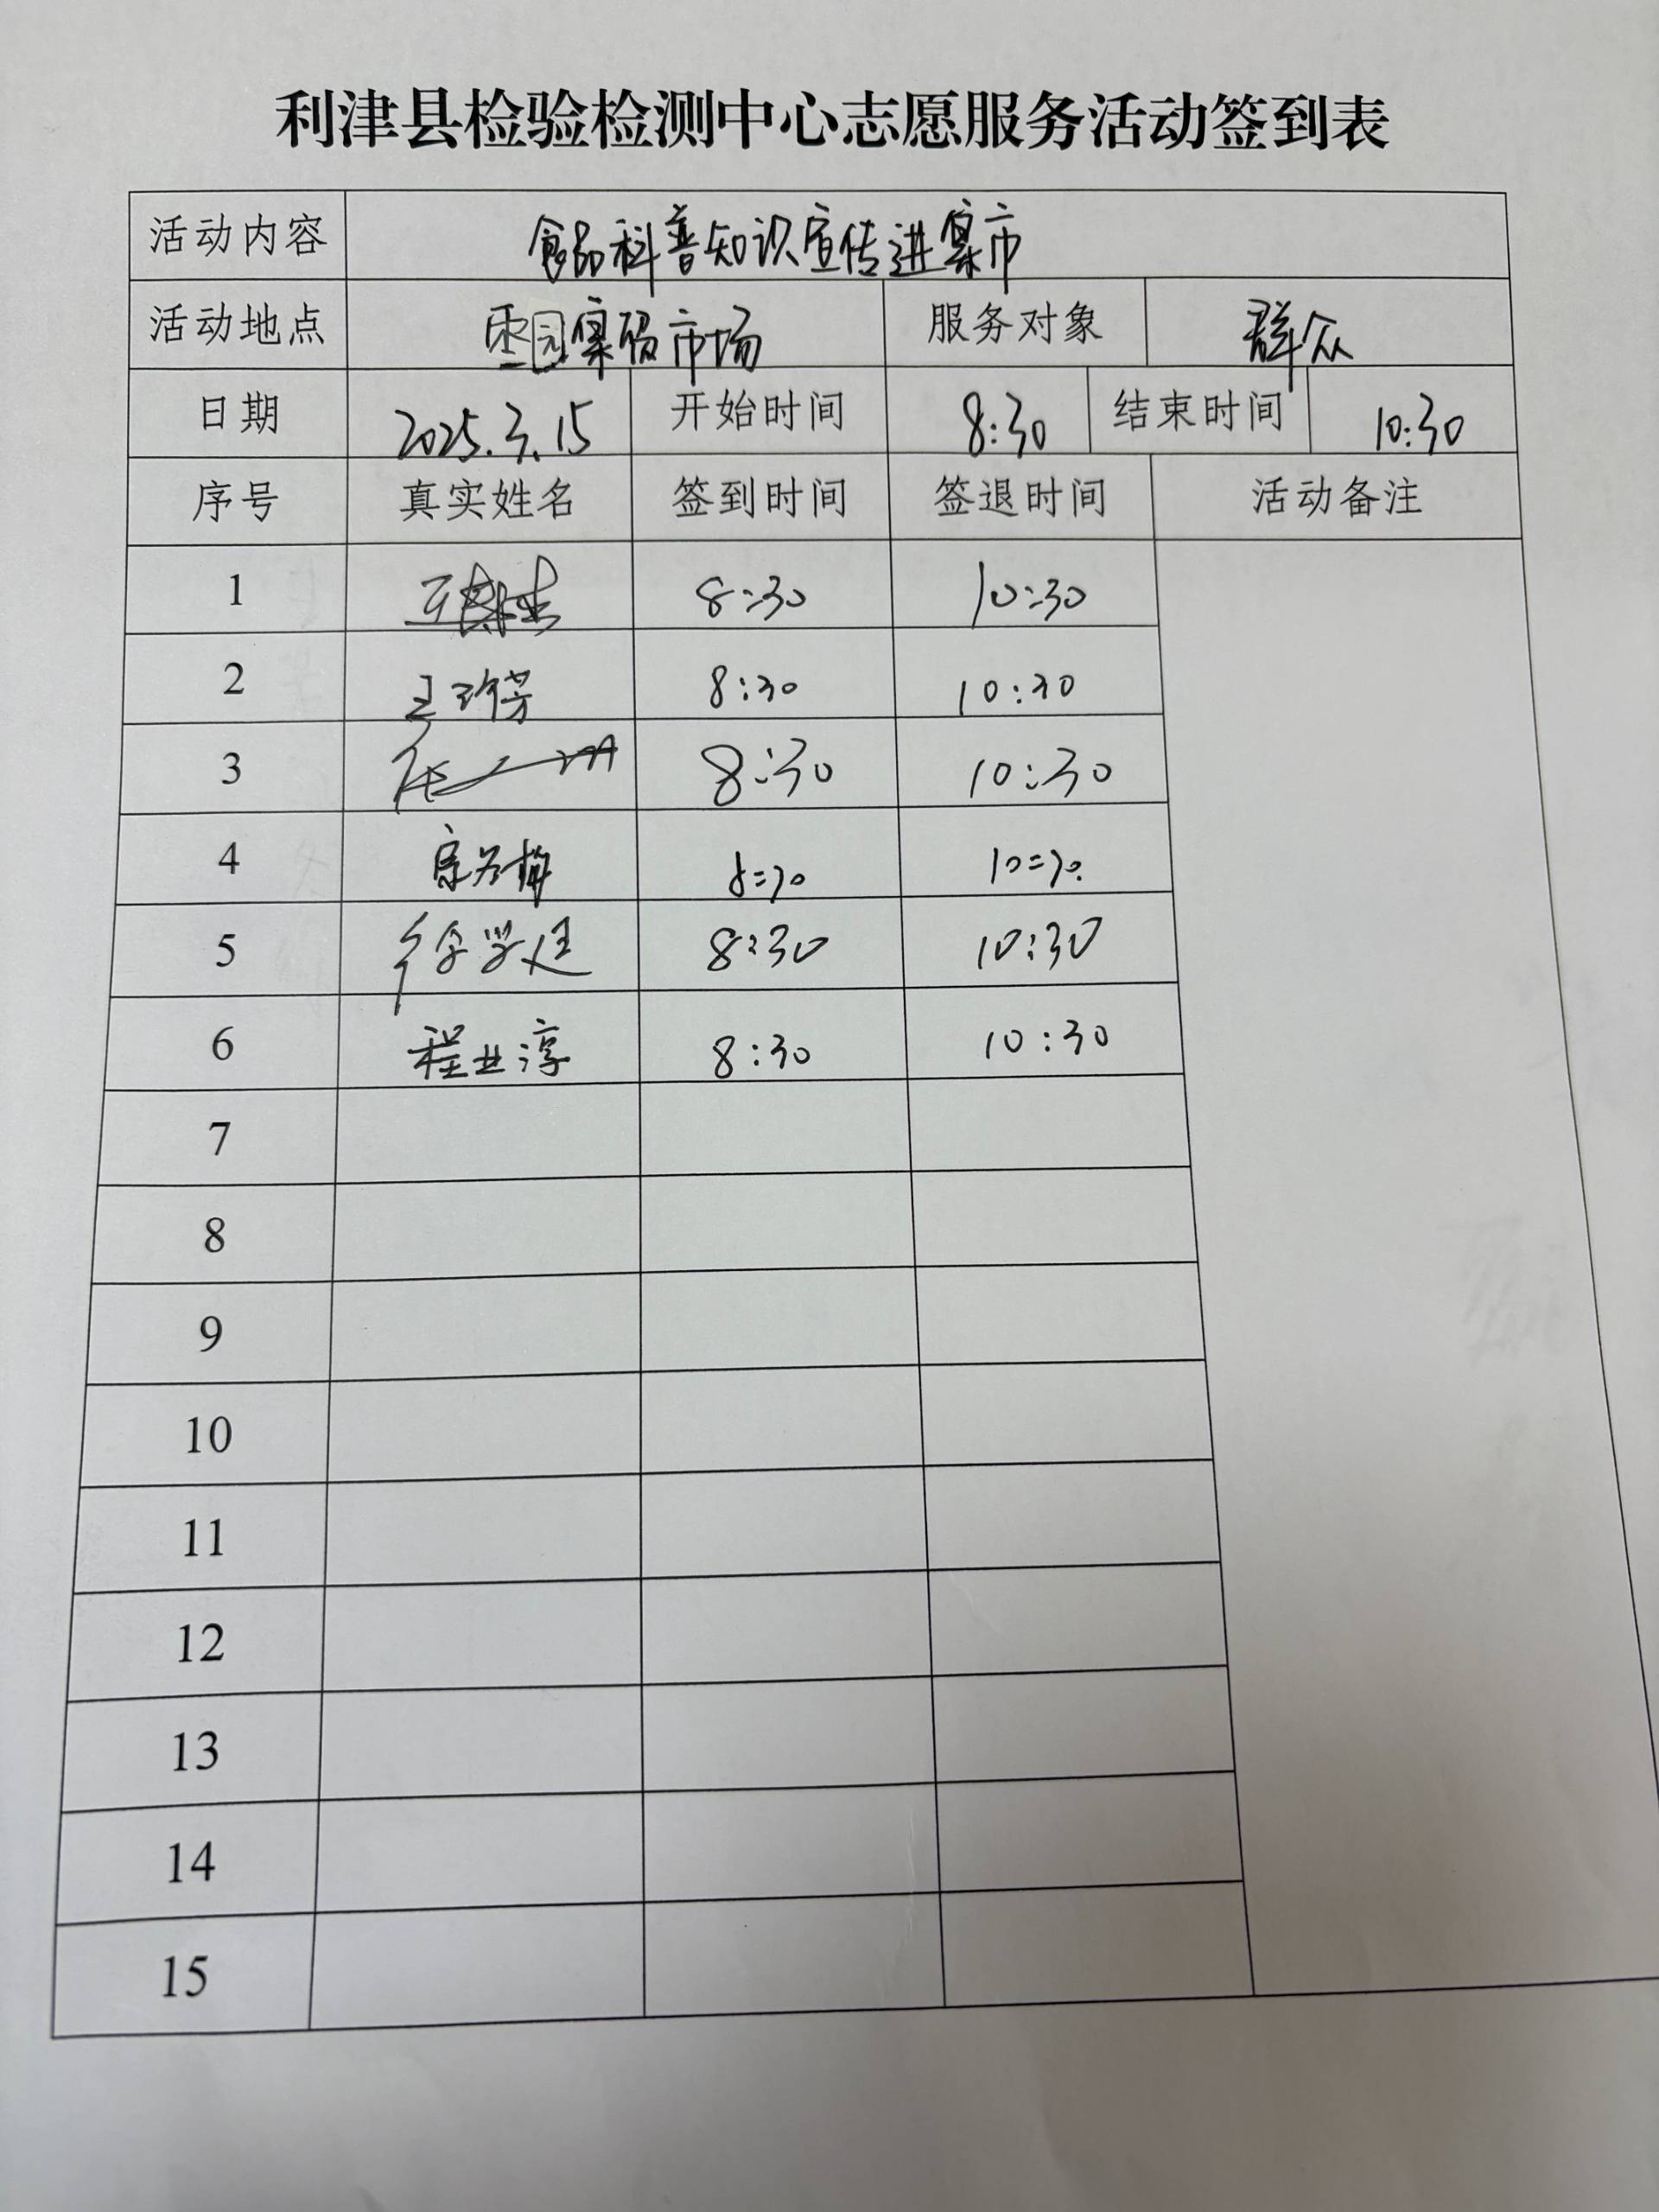 利津县检验检测中心志愿服务活动签到表
活动内容 食品科普知识宣传进集市
活动地点 市场 服务对象 群众
日期 2025.3.15 开始时间 8:30 结束时间 10:30
序号 真实姓名 签到时间 签退时间 活动备注
1 8:30 10:30
2 王 芳 8:30 10:30
3 张 8:30 10:30
4 8:30 10:30
5 徐学廷 8:30 10:30
6 程业淳 8:30 10:30
7
8
9
10
11
12
13
14
15